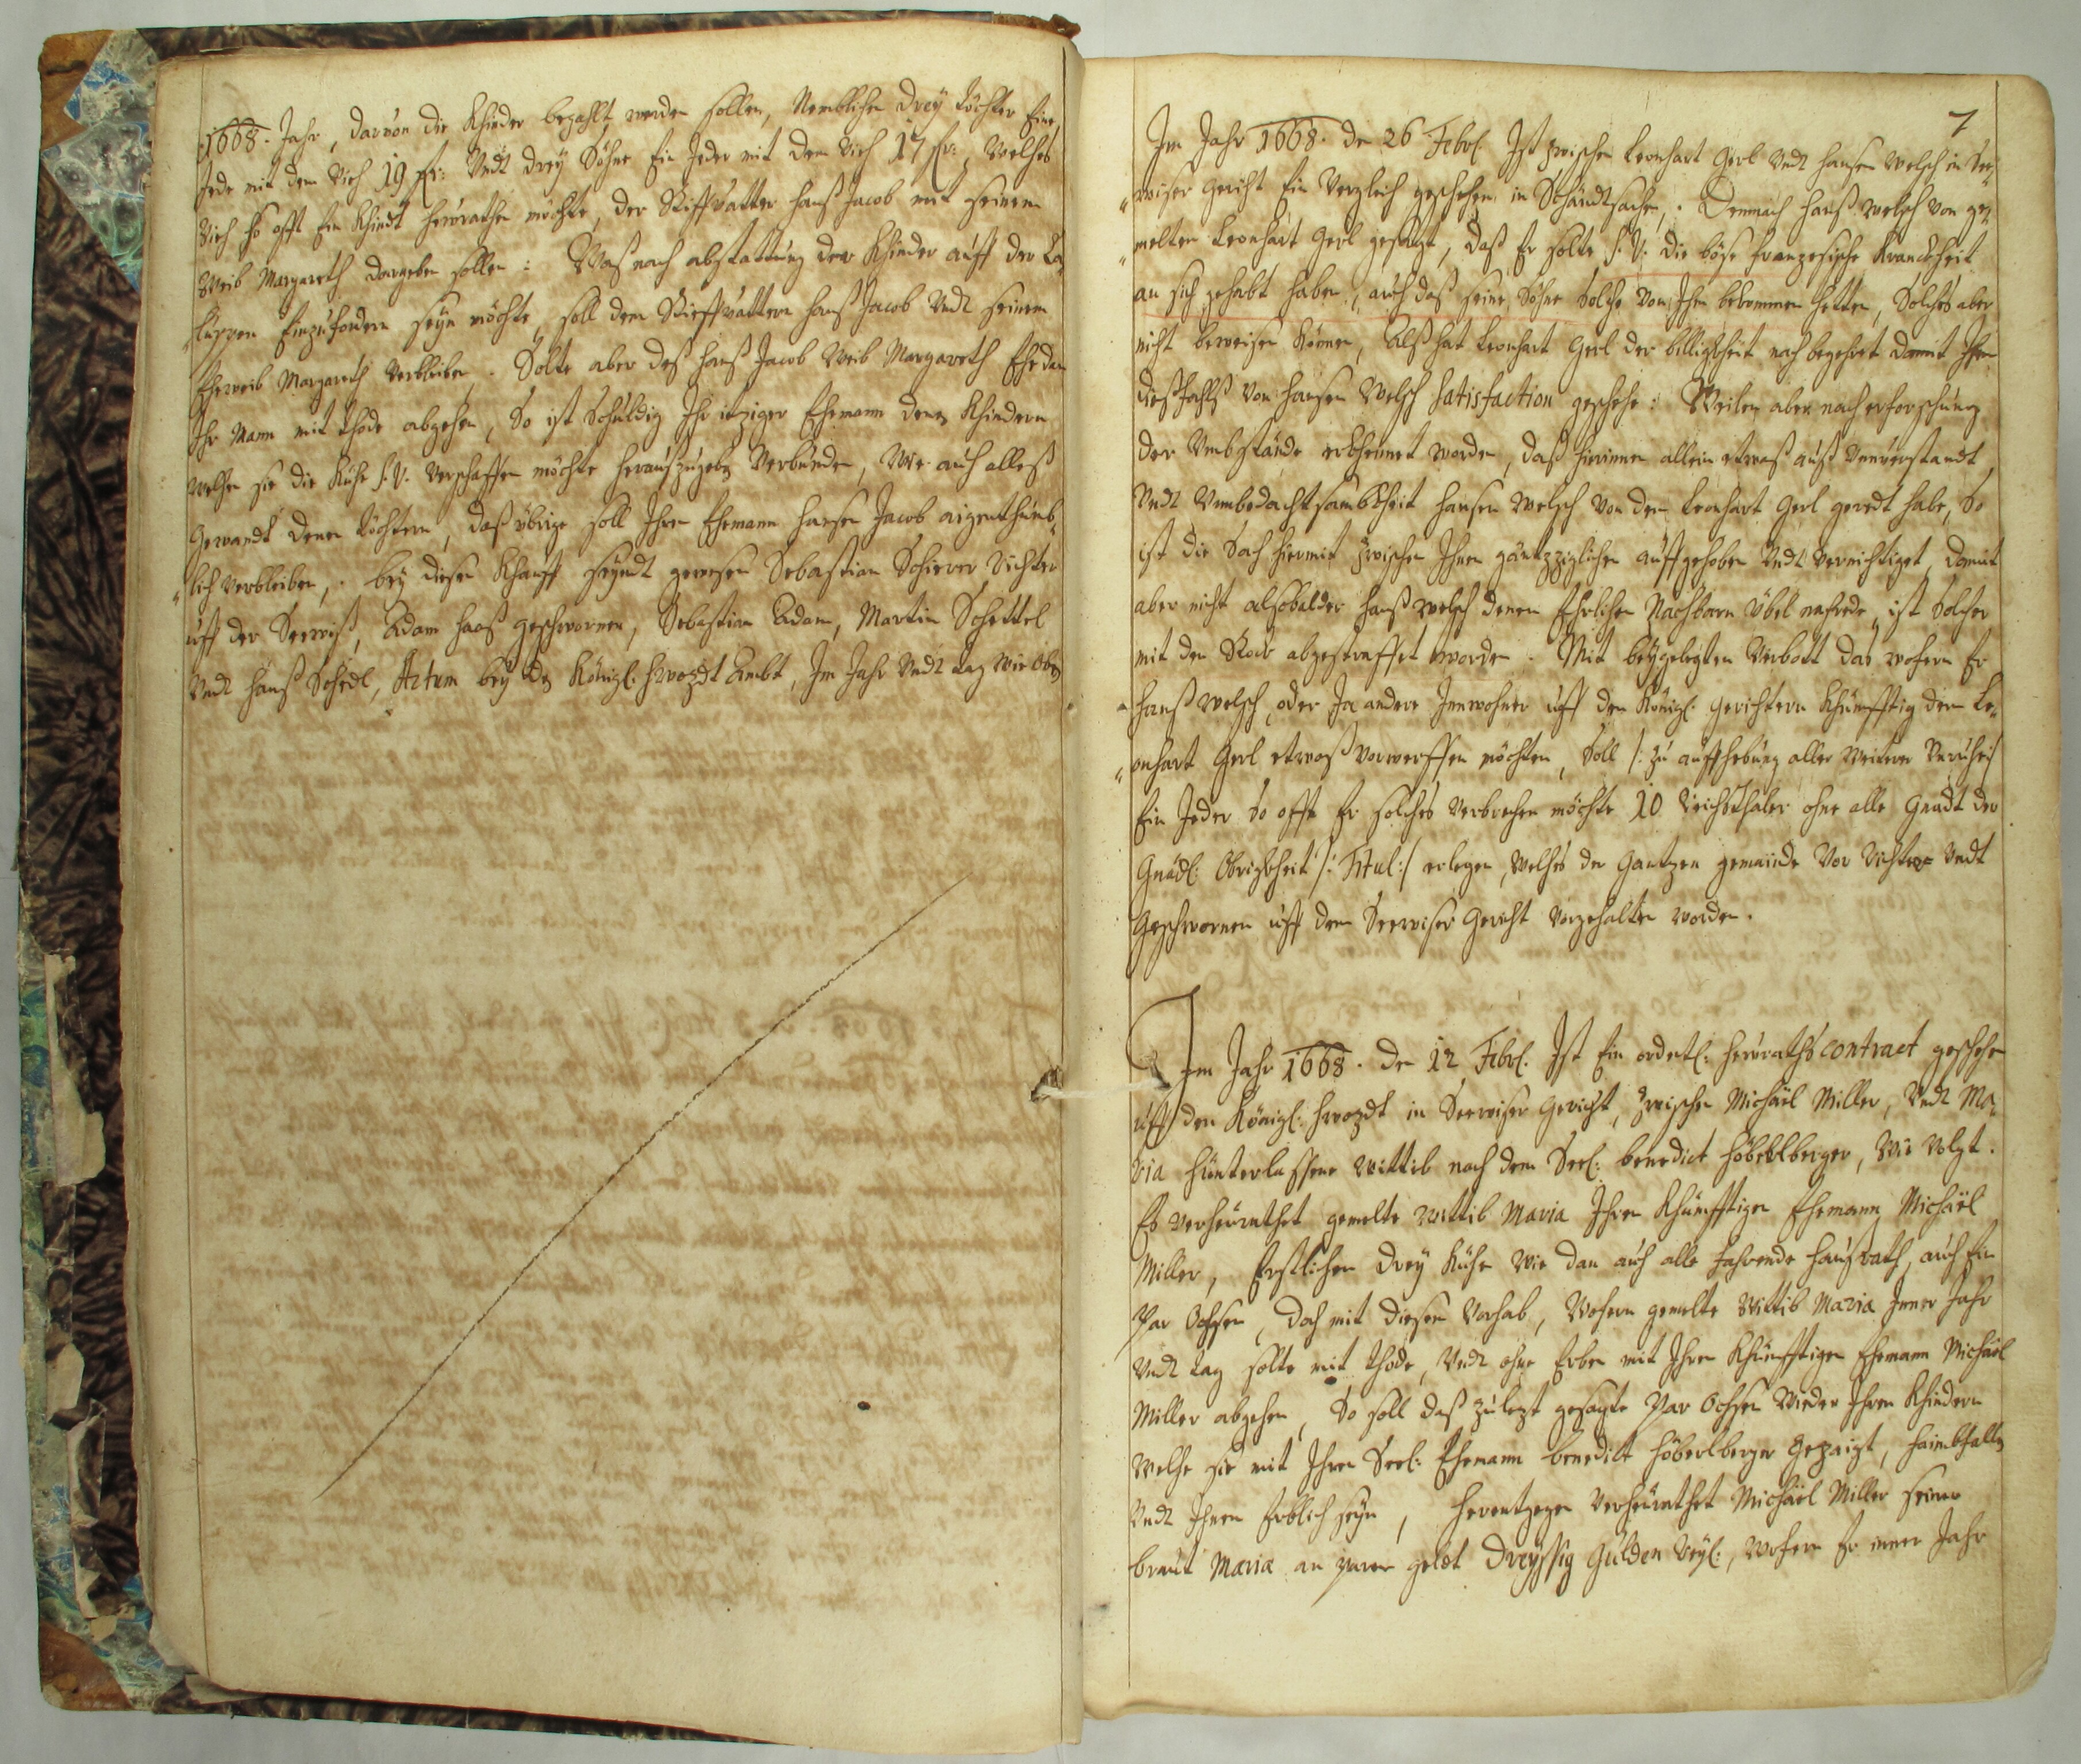 1668. Jahr, darvon die Khinder bezahlt werden sollen, Nemblichen drey Töchter Eine
Jede mit dem Vich 19 fr: Undt drey Söhne Ein Jeder mit dem Vich 17 fr:, Welches
Vich so offt Ein Khindt heurathen möchte, der Stieffvatter Hanß Jacob mit seinem
Weib Margareth dargeben sollen: Waß nach abstattung der Khinder auff der
Einzufordern seyn möchte, soll dem Stieffvattern Hanß Jacob Undt seinem
Eheweib Margareth Verbleiben. Solte aber deß Hanß Jacob Weib Margareth Ehe dan
Ihr Mann mit thode abgehen, So ist Schuldig Ihr itziger Ehemann denen Khindern
welchen sie die Kühe S: V: Verschaffen möchte herauszugeben Verbunden, Wie auch alleß
Gewandt denen Töchtern, daß übrige soll Ihrem Ehemann Hansen Jacob aigenthumb„
„lich Verbleiben. bey diesen Khauff seyndt gewesen Sebastian Schierer Richter
uff der Seewiß, Adam Haas geschworner, Sebastian Adam, Martin Schettel
Undt Hanß Schedl, Actum bey des Königl: Hwozdt Ambt, Im Jahr Undt tag Wie Oben
7
Im Jahr 1668. den 26 Febrl. Ist zwischen Leonhart Gerl Undt Hansen Welsch in See„
„wiser Gericht Ein Vergleich geschehen, in Schandtsachen. Demnach Hanß Welsch von ge„
„melten Leonhart Gerl gesagt, daß Er solte S: V: die böse franzesische Kranckheit
an sich gehabt haben, auch daß seine Söhne solche Von Ihm bekommen hetten, Solches aber
nicht beweisen können, Alß hat Leonhart Gerl der billigkheit nach begehret damit Ihm
dießfahlß Von Hansen Welsch Satisfaction geschehe: Weilen aber nach erforschung
der Umbstände erkhennet worden, daß hierinnen allein etwaß auß Unverstandt
Undt Unbedachtsambkheit Hansen Welsch von dem Leonhart Gerl geredt habe, So
ist die Sach hiermit zwischen Ihnen gäntzziglichen auffgehoben Undt Vernichtiget, damit
aber nicht alsobalder Hanß Welsch denen Ehrlichen Nachbarn übel nachrede, ist Solcher
mit dem Stock abgestraffet worden. Mit beygelegten Verbott das wofern Er
Hanß Welsch, oder Ja andere Innwohner uff den Königl: Gerichtern Khünfftig dem Le„
„onhart Gerl etwaß Vorwerffen möchten, Soll /: zu auffhebung aller Weitern Unruhe :/
Ein Jeder So offt Er solches Verbrechen möchte 10 Reichsthaler ohne alle Gnadt der
Gnädl: Obrigkheit /: Titul :/ erlegen, Welches der Gantzen gemainde Vor Richter Undt
Geschwornen uff dem Seewiser Gericht Vorgehalten worden.
Im Jahr 1668. den 12 Febrl. Ist Ein ordentl: Heuraths contract geschehen
uff den Königl: Hwozdt in Seewiser Gericht, zwischen Michäel Miller, Undt Ma„
ria hünterlassene Wittib nach dem Seel: benedict Höberlberger, Wie Volgt.
Es Verheurathet gemelte Wittib Maria Ihren Khünfftigen Ehemann Michäel
Miller, Erstlichen drey Kühe wie dan auch alle fahrende Haußrath, auch Ein
Par Ochsen, doch mit diesen Vorhab, Wofern gemelte Wittib Maria Inner Jahr
Undt tag solte mit thode, Undt ohne Erben mit Ihren Khünfftigen Ehemann Michäel
Miller abgehen, So soll daß zulezt gesagte Par Ochsen Wieder Ihren Khindern
Welche sie mit Ihren Seel: Ehemann benedict Höberlberger gezaigt, haimbfallen
Undt Ihnen Erblich seyn, herentgegen Verheurathet Michäel Miller seiner
braut Maria an paren geldt Dreyssig Gulden Reyl:, wofern Er inner Jahr